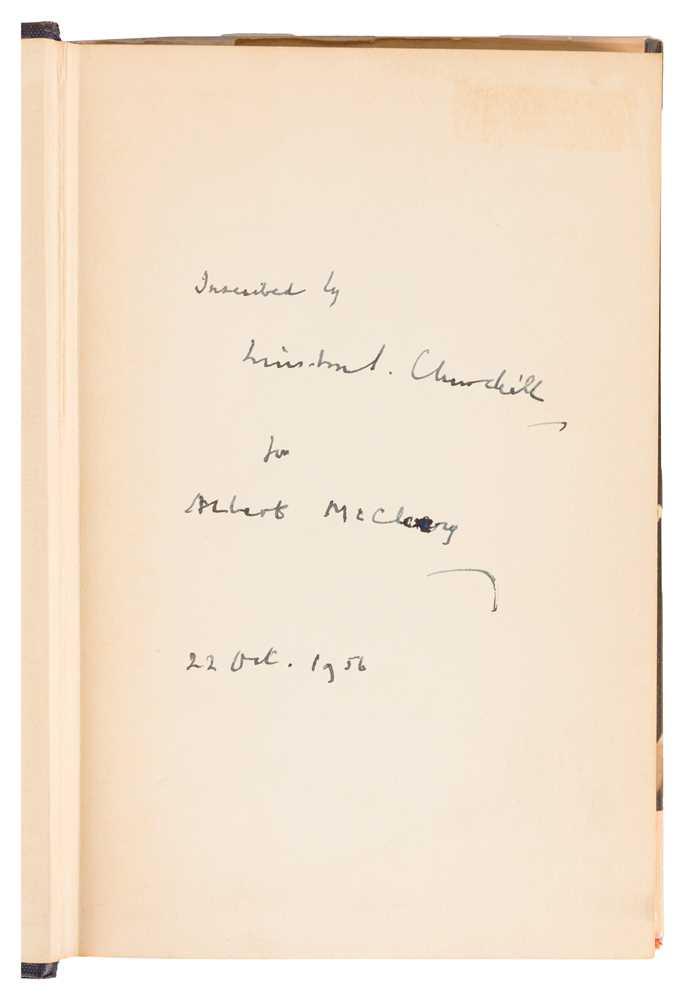 Inscribed by
Winston S. Churchill
for
Albert McCleery
22 Oct. 1956